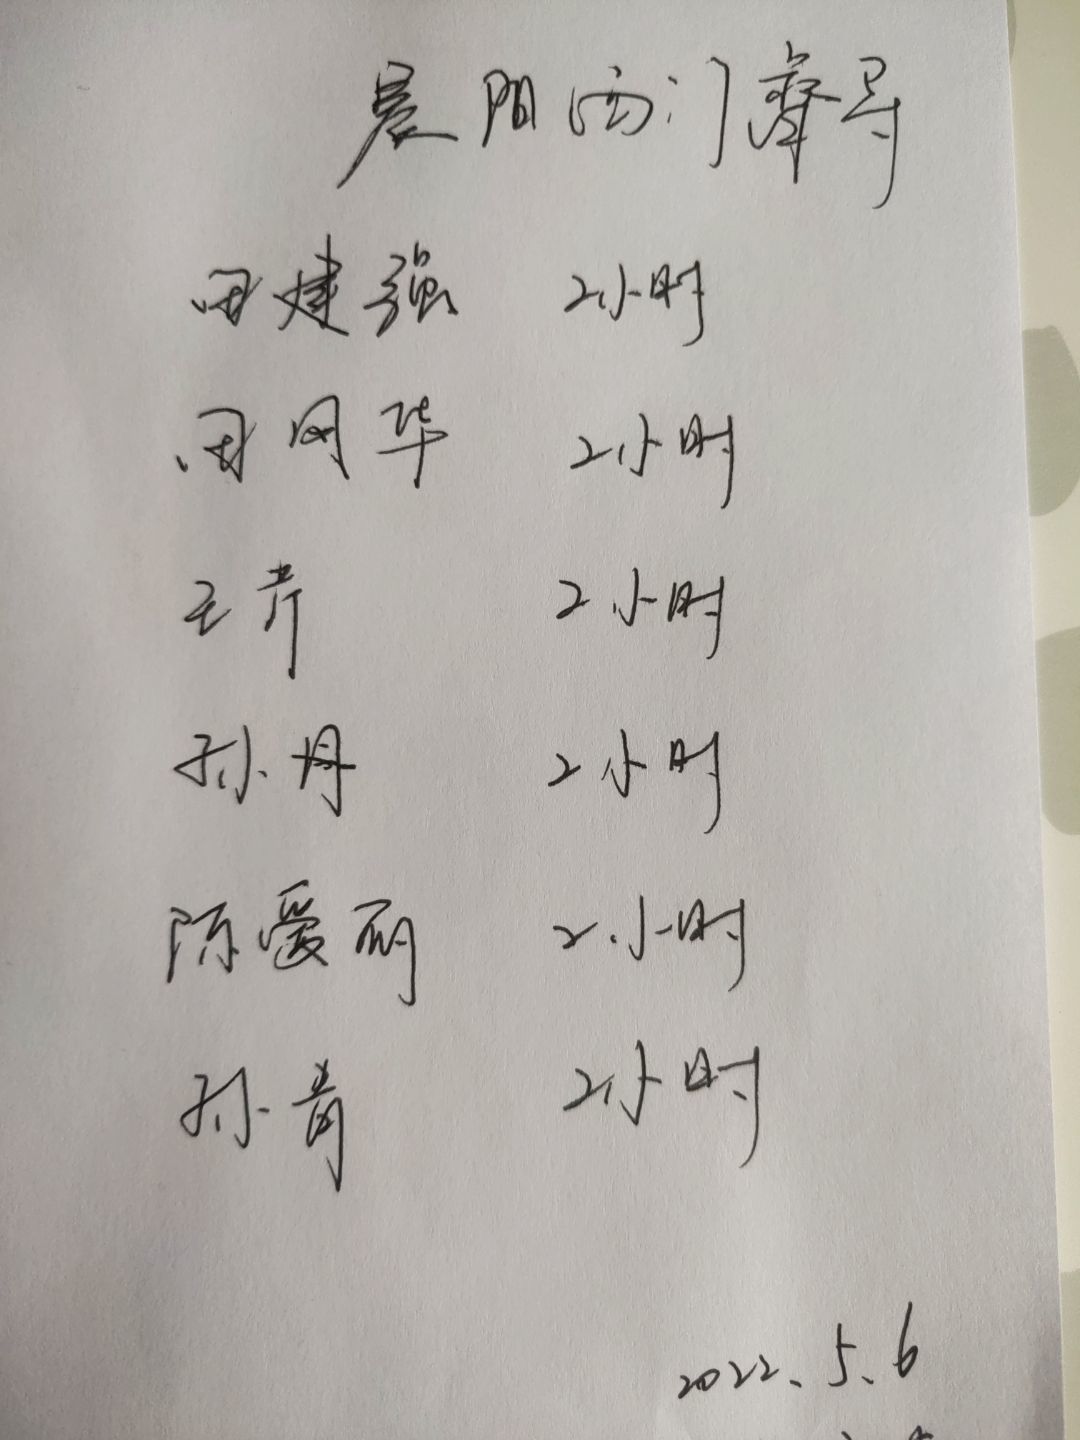 晨阳西门督导
田建强 2小时
田网华 2小时
王芹 2小时
孙丹 2小时
陈爱丽 2小时
孙青 2小时
2022.5.6